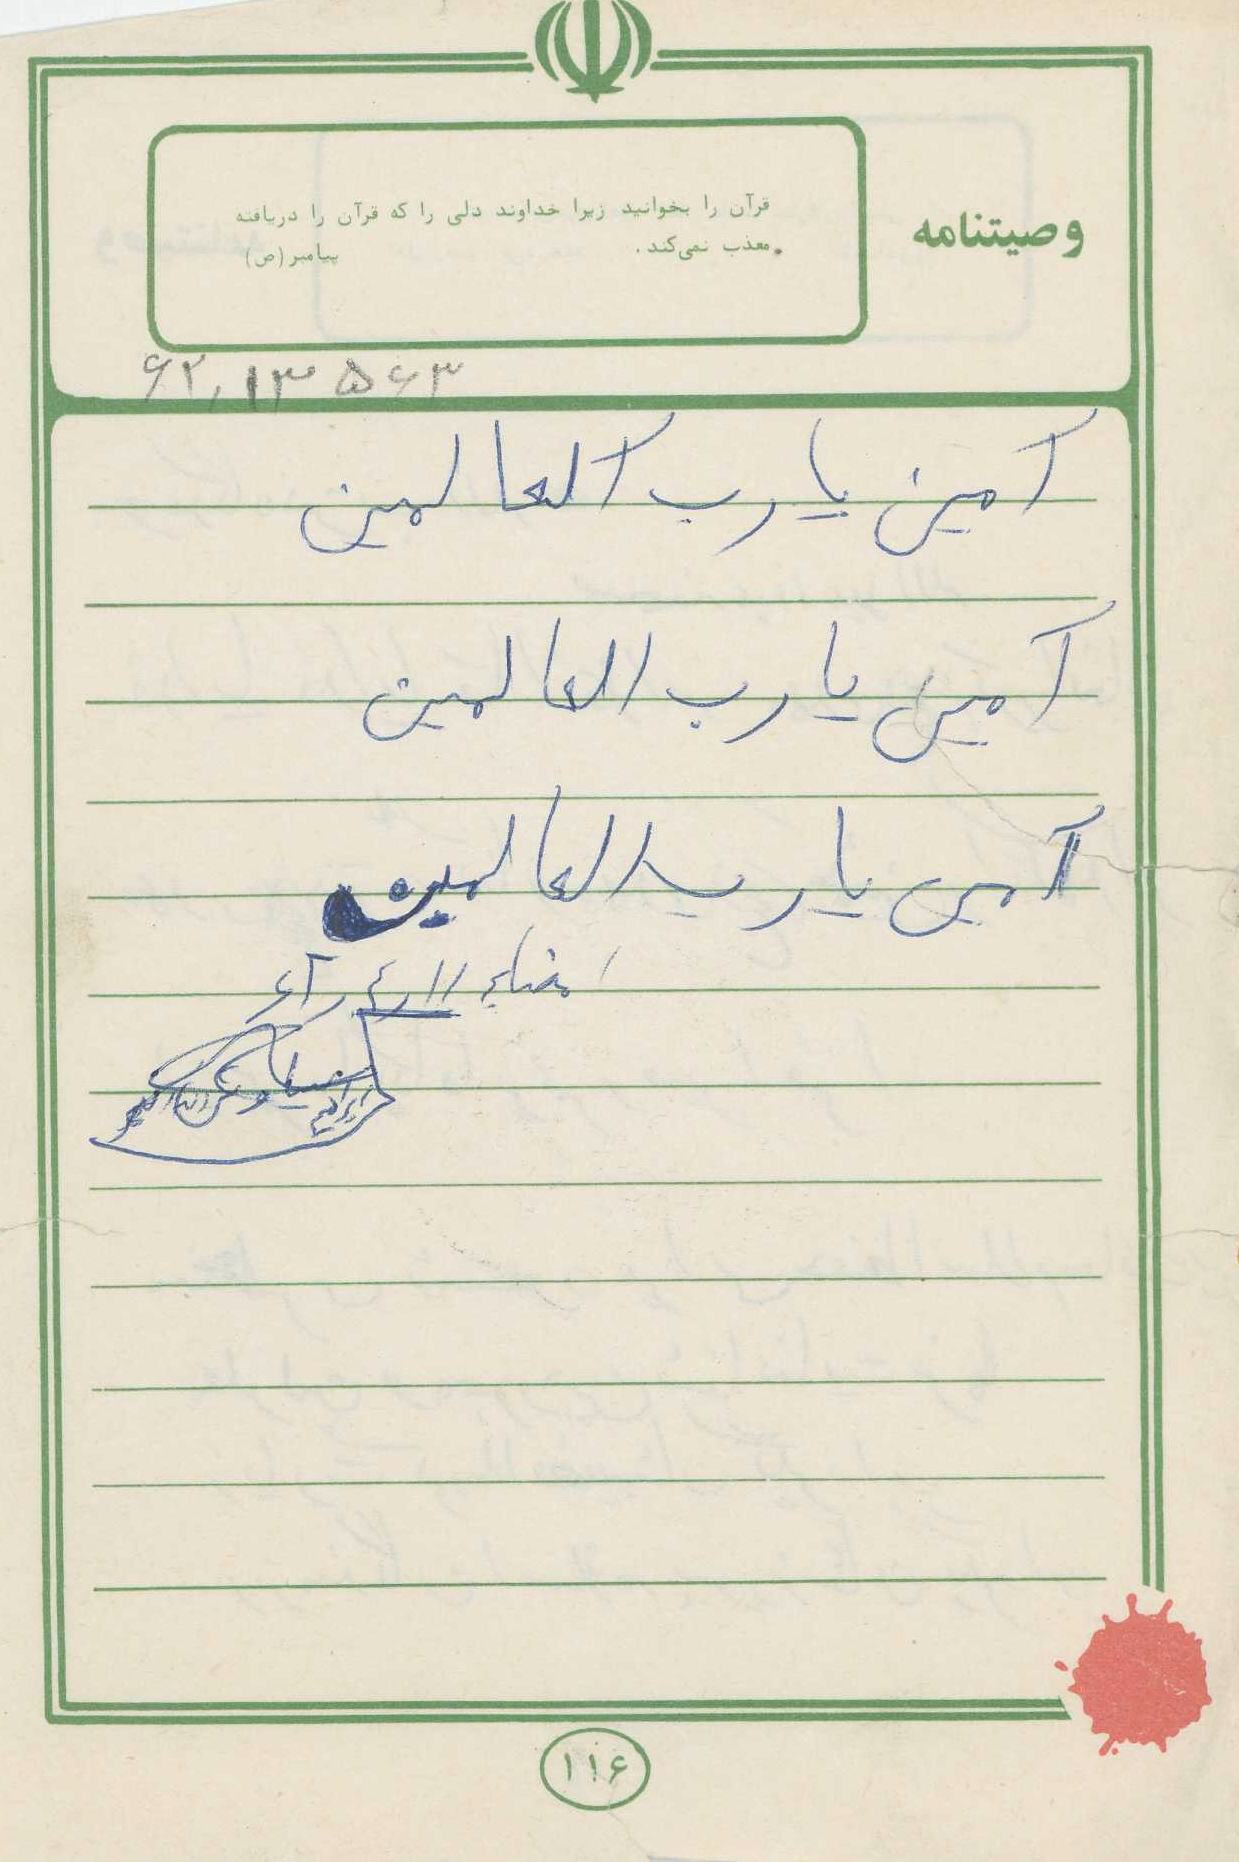 وصیتنامه
قرآن را بخوانید زیرا خداوند دلی را که قرآن را دریافته
معذب نمی‌کند.
پیامبر (ص)
۶۲,۱۳۵۶۳
آمین یا رب العالمین
آمین یا رب العالمین
آمین یا رب العالمین
امضاء ۱۱ر۴ر۶۲
۱۱۶